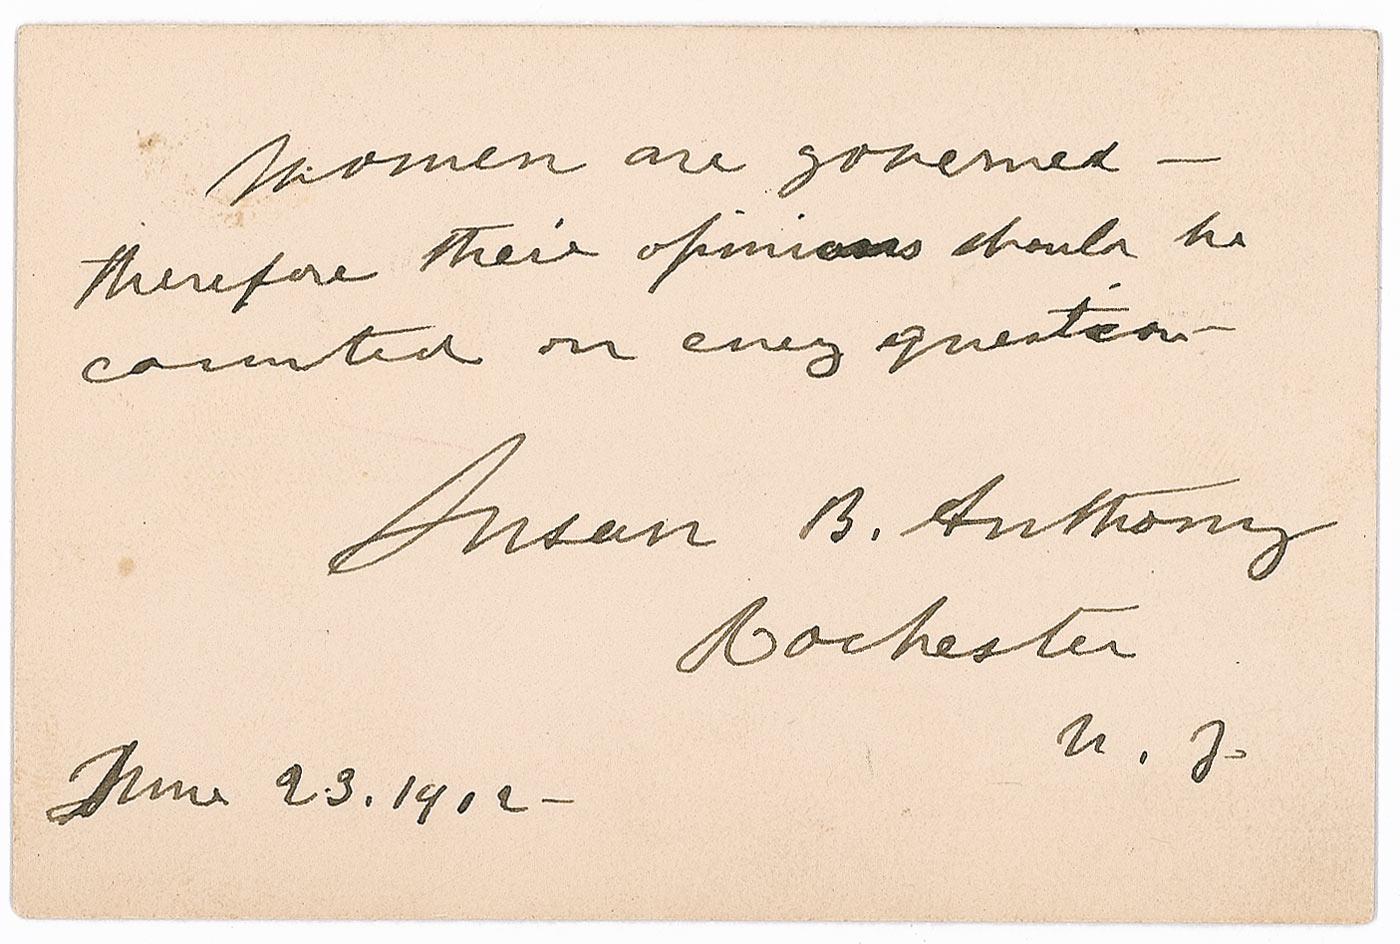 Women are governed —
therefore their opinions should be
counted on every question —
Susan B. Anthony
Rochester
N. Y.
June 23. 1902 —